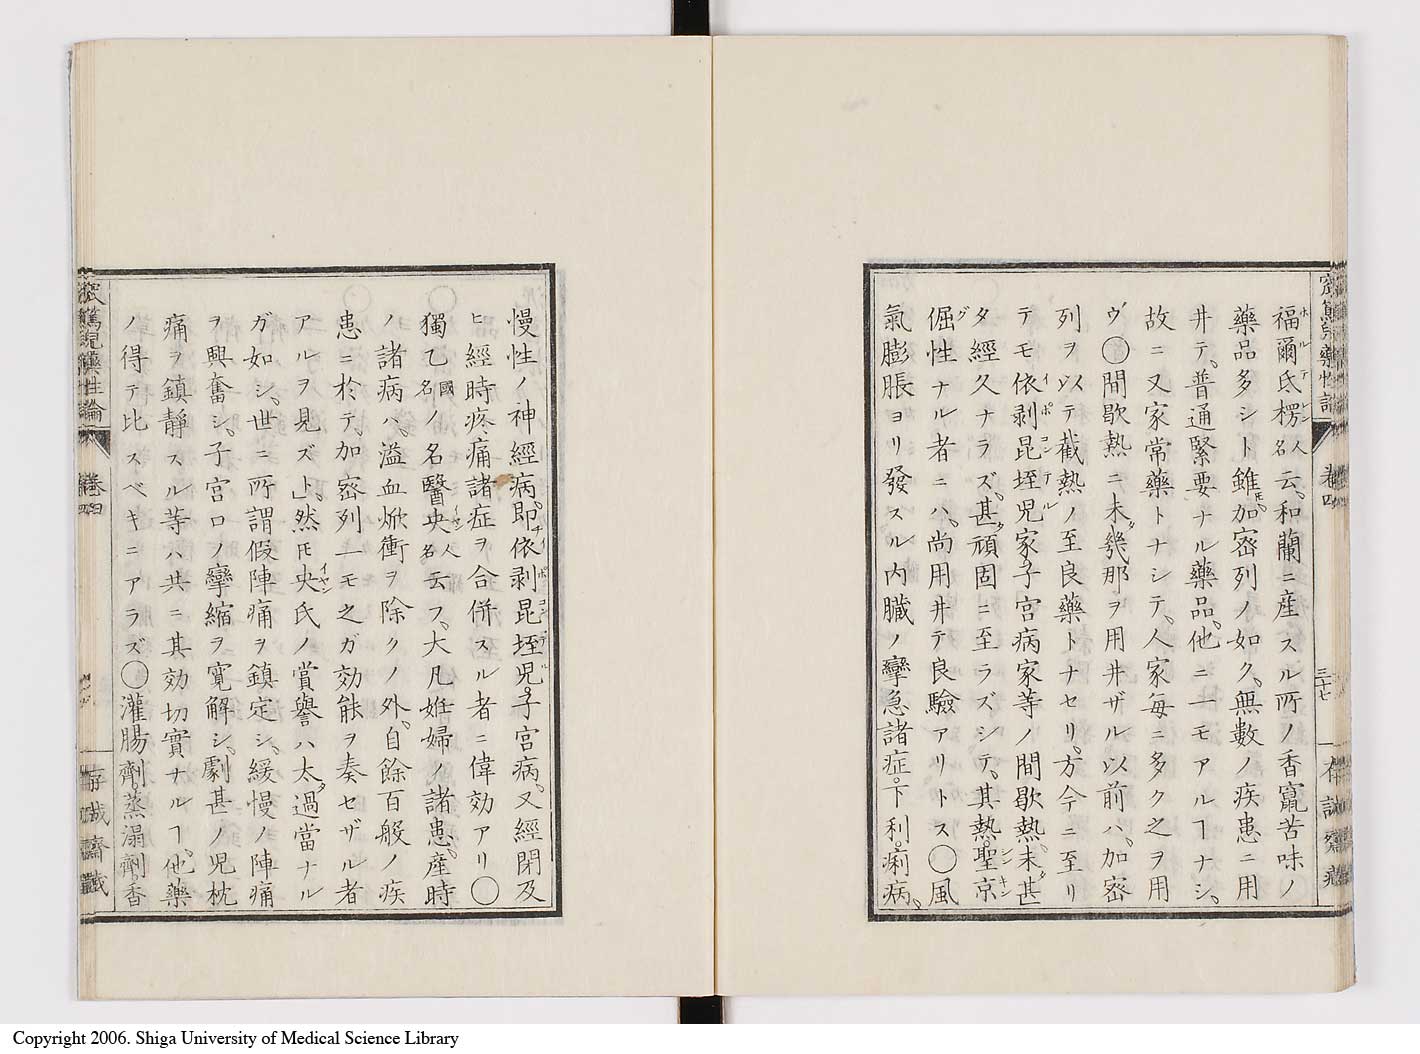 福爾氐楞人名云、和蘭ニ産スル所ノ香竄苦味ノ
藥品多シト雖モ、加密列ノ如ク、無數ノ疾患ニ用
井テ、普通緊要ナル藥品、他ニ一モアルヿナシ、
故ニ又家常藥トナシテ、人家毎ニ多ク之ヲ用
ウ、○間歇熱ニ未ダ幾那ヲ用井ザル以前ハ、加密
列ヲ以テ截熱ノ至良藥トナセリ、方今ニ至リ
テモ依剥昆垤児家、子宮病家等ノ間歇熱、未ダ甚
タ經久ナラズ、甚ダ頑固ニ至ラズシテ、其熱聖京
倔性ナル者ニハ、尚用井テ良驗アリトス○風
氣膨脹ヨリ發スル内臓ノ攣急諸症。下利。痢病。
卷四
三十七
慢性ノ神經病、即チ依剥昆垤児。子宮病、又經閉及
ヒ經時疼痛諸症ヲ合併スル者ニ偉効アリ○
獨乙國名ノ名醫央人名云フ、大凡姙婦ノ諸患、産時
ノ諸病ハ、溢血焮衝ヲ除クノ外、自餘百般ノ疾
患ニ於テ、加密列一モ之ガ効能ヲ奏セザル者
アルヲ見ズト」然モ央氏ノ賞譽ハ太タ過當ナル
ガ如シ、世ニ所謂假陣痛ヲ鎮定シ、緩慢ノ陣痛
ヲ興奮シ、子宮口ノ攣縮ヲ寛解シ、劇甚ノ児枕
痛ヲ鎮靜スル等ハ共ニ其効切實ナルヿ、他藥
ノ得テ比スベキニアラズ○灌腸劑。蒸溻劑。香
卷四
存誠齋藏